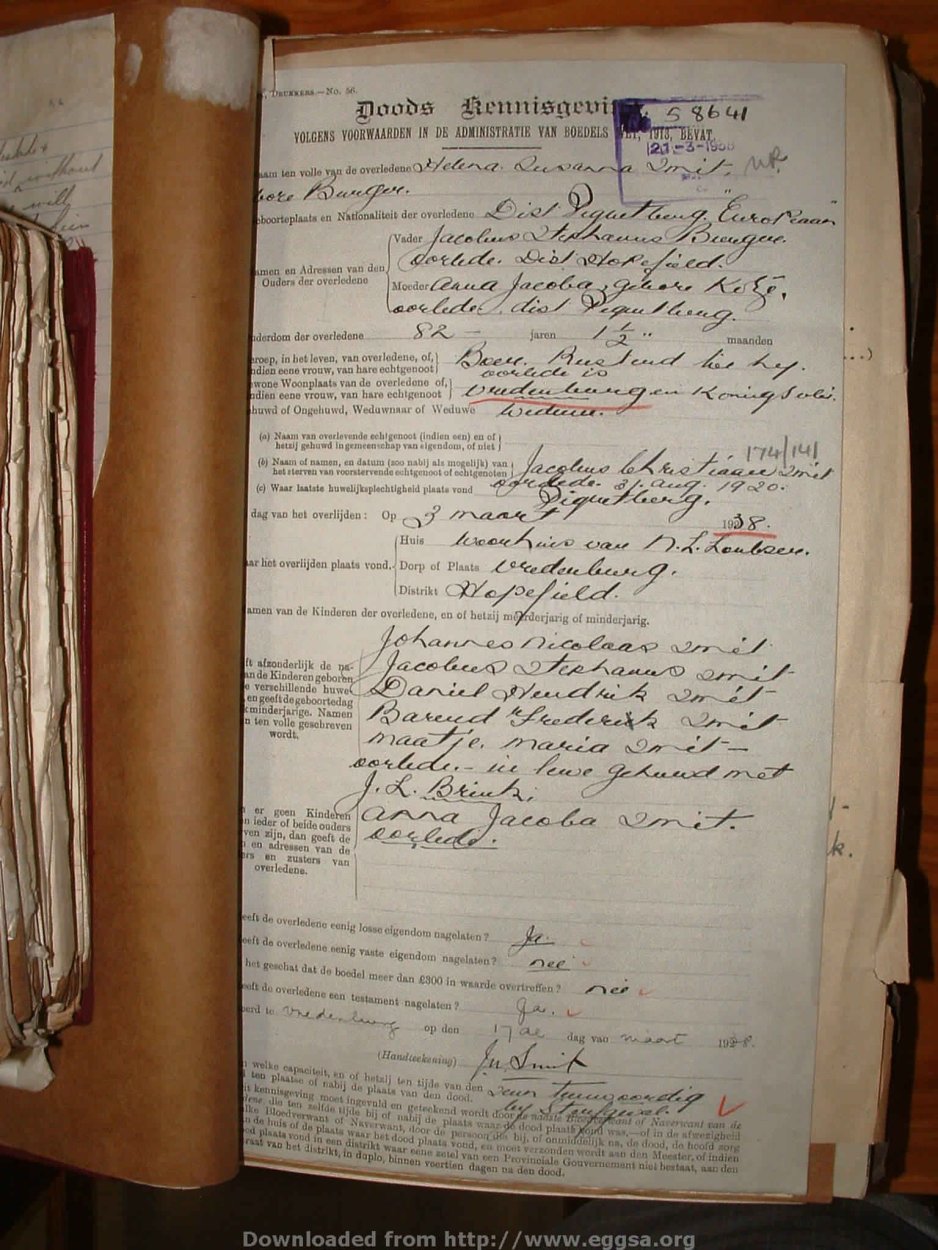 DRUKKERS.—No. 56.
Doods Kennisgevi
VOLGENS VOORWAARDEN IN DE ADMINISTRATIE VAN BOEDELS WET, 1913, BEVAT.
58641
21-3-1938
aam ten volle van de overledene Helena Susanna Smit,
bore Burger.
eboorteplaats en Nationaliteit der overledene Dist Piquetberg. Europeaan
amen en Adressen van den
Ouders der overledene
Vader Jacobus Stephanus Burger.
oorlede. Dist Hopefield.
Moeder Anna Jacoba, gebore Kotze.
oorlede, dist Piquetberg.
nderdom der overledene 82 — jaren 1½ " maanden
eroep, in het leven, van overledene, of,
ndien eene vrouw, van hare echtgenoot
Boer. Rustend toe hy
oorlede is
wone Woonplaats van de overledene of,
ndien eene vrouw, van hare echtgenoot
Vredenburg en
huwd of Ongehuwd, Weduwnaar of Weduwe Weduwe.
(a) Naam van overlevende echtgenoot (indien een) en of
hetzij gehuwd in gemeenschap van eigendom, of niet
174/141
(b) Naam of namen, en datum (zoo nabij als mogelijk) van
het sterven van voorstervende echtgenoot of echtgenoten
Jacobus Christiaan Smit
oorlede. 31. Aug. 1920.
(c) Waar laatste huwelijksplechtigheid plaats vond Piquetberg.
dag van het overlijden: Op 3 Maart 1938.
ar het overlijden plaats vond.
Huis Woonhuis van N. L. Loubser.
Dorp of Plaats Vredenburg.
Distrikt Hopefield.
amen van de Kinderen der overledene, en of hetzij meerderjarig of minderjarig.
ft afzonderlijk de na-
an de Kinderen geboren
e verschillende huwe
en geeft de geboortedag
minderjarige. Namen
n ten volle geschreven
wordt.
Johannes Nicolaas Smit
Jacobus Stephanus Smit
Daniel Hendrik Smit
Barend Frederick Smit
Maatje Maria Smit —
oorlede. — in lewe gehuud met
J. L. Brink.
er geen Kinderen
n ieder of beide ouders
ven zijn, dan geeft de
en adressen van de
ers en zusters van
overledene.
Anna Jacoba Smit.
oorlede.
eeft de overledene eenig losse eigendom nagelaten? Ja.
eeft de overledene eenig vaste eigendom nagelaten? nee
het geschat dat de boedel meer dan £300 in waarde overtreffen? nee
eeft de overledene een testament nagelaten? Ja.
eerd te Vredenburg op den 17de dag van Maart 1938.
(Handteekening) Smit
n welke capaciteit, en of hetzij ten tijde van den
ten plaatse of nabij de plaats van den dood.
Seun teenwoordig
by Sterfgeval.
it kennisgeving moet ingevuld en geteekend wordt door de naaste Bloedverwant of Naverwant van de
dene, die ten zelfde tijde bij of nabij de plaats waar de dood plaats vond was,—of in de afwezigheid
ulke Bloedverwant of Naverwant, door de persoon die bij, of onmiddelijk na, de dood, de hoofd zorg
n de huis of de plaats waar het dood plaats vond, en moet verzonden wordt aan den Meester, of indien
od plaats vond in een distrikt waar eene zetel van een Provinciale Gouvernement niet bestaat, aan den
raat van het distrikt, in duplo, binnen veertien dagen na den dood.
without
will
Downloaded from http://www.eggsa.org